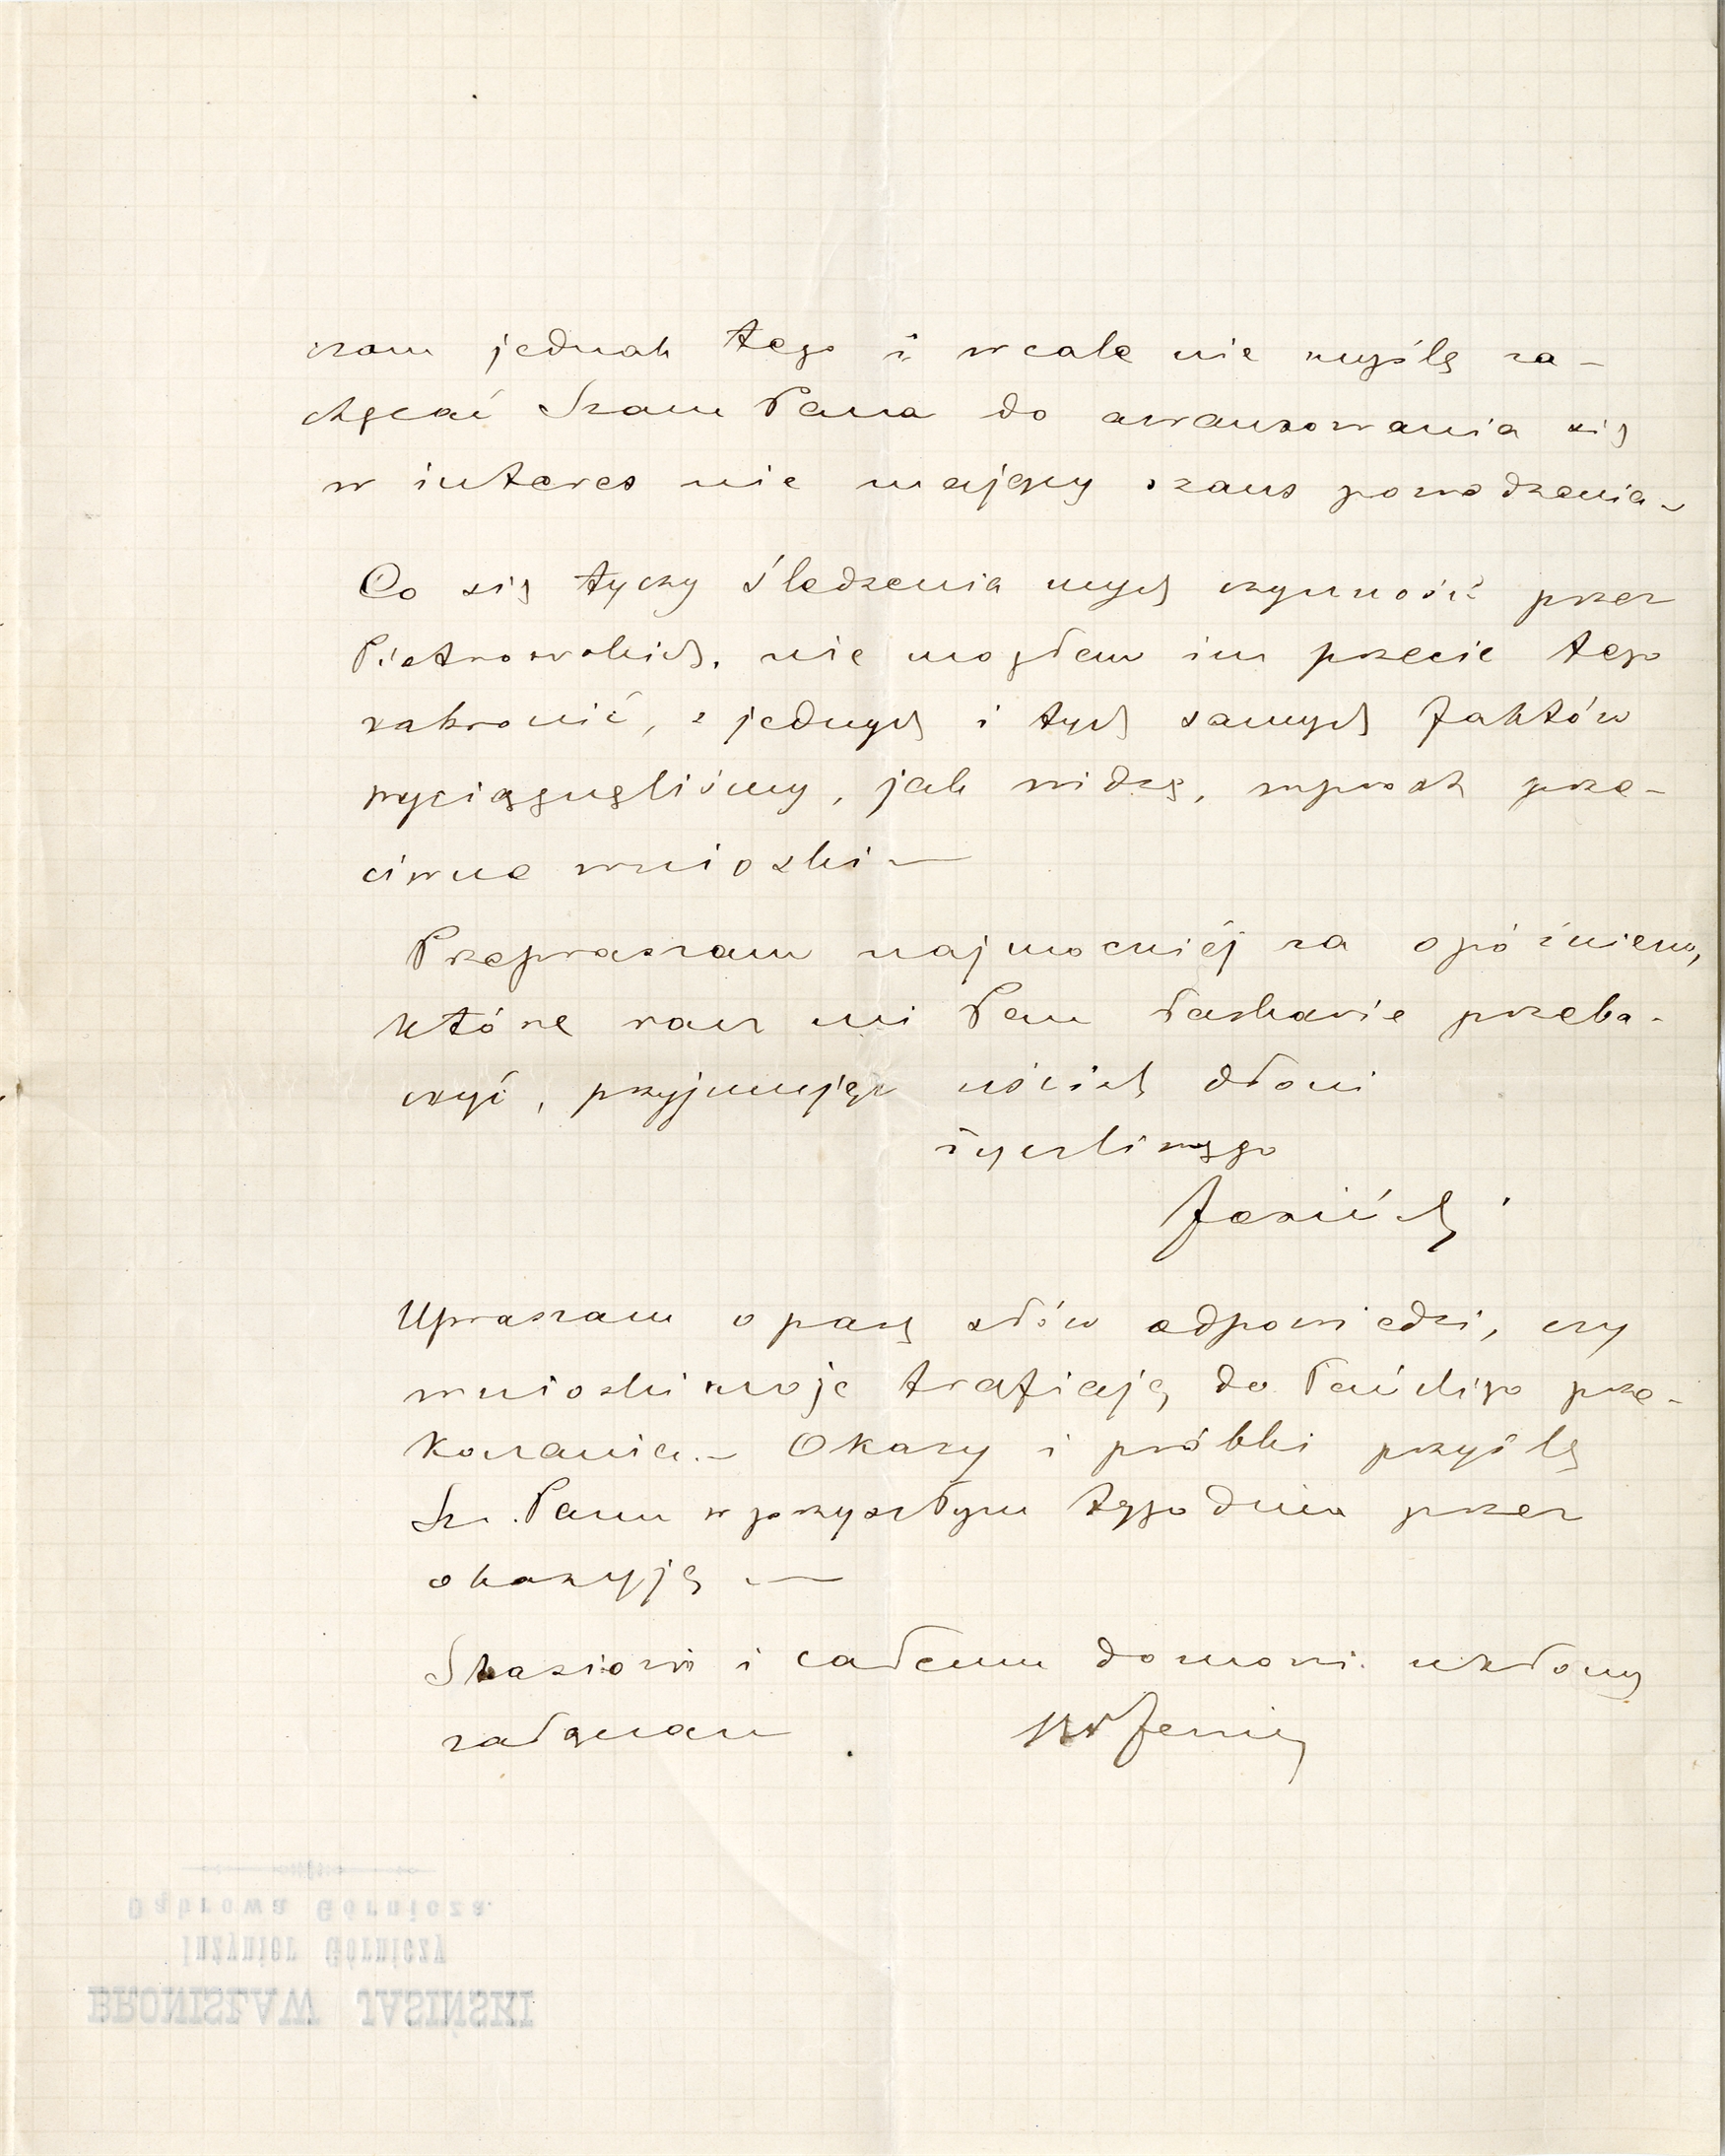 czam jednak tego i wcale nie myślę za-
chęcać Szan Pana do awansowania się
w interes nie mający szans powodzenia.-
Co się tyczy śledzenia mych czynność przez
Piotrowskich, nie mogłem im przecie tego
zabronić, z jednych i tych samych faktów
wyciągnęliśmy, jak widzę, wprost prze-
ciwne wnioski —
Przepraszam najmocniéj za opóźnienie,
które racz mi Pan łaskawie przeba-
czyć, przyjmując uścisk dłoni
życzliwego
Jasiński
Upraszam o parę słów odpowiedzi, czy
wnioski moje trafiają do Pańskiego prze-
konania.- Okazy i próbki przyślę
Sz. Panu w przyszłym tygodniu przez
okazyję —
Stasiowi i całemu domowi ukłony
załączam
Dąbrowa Górnicza.
Inżynier Górniczy
BRONISŁAW JASIŃSKI